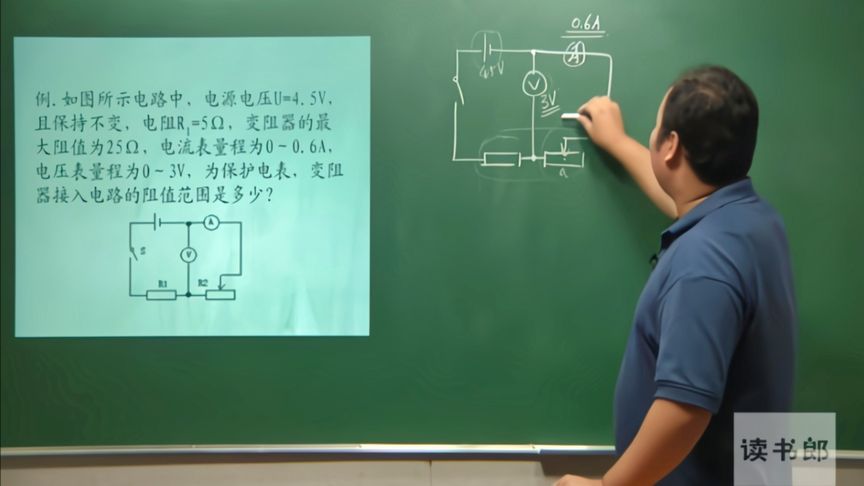 例.如图所示电路中，电源电压U=4.5V，
且保持不变，电阻R1=5Ω，变阻器的最
大阻值为25Ω，电流表量程为0~0.6A，
电压表量程为0~3V，为保护电表，变阻
器接入电路的阻值范围是多少?
A
S
V
R1
R2
0.6A
A
V
3V
读书郎